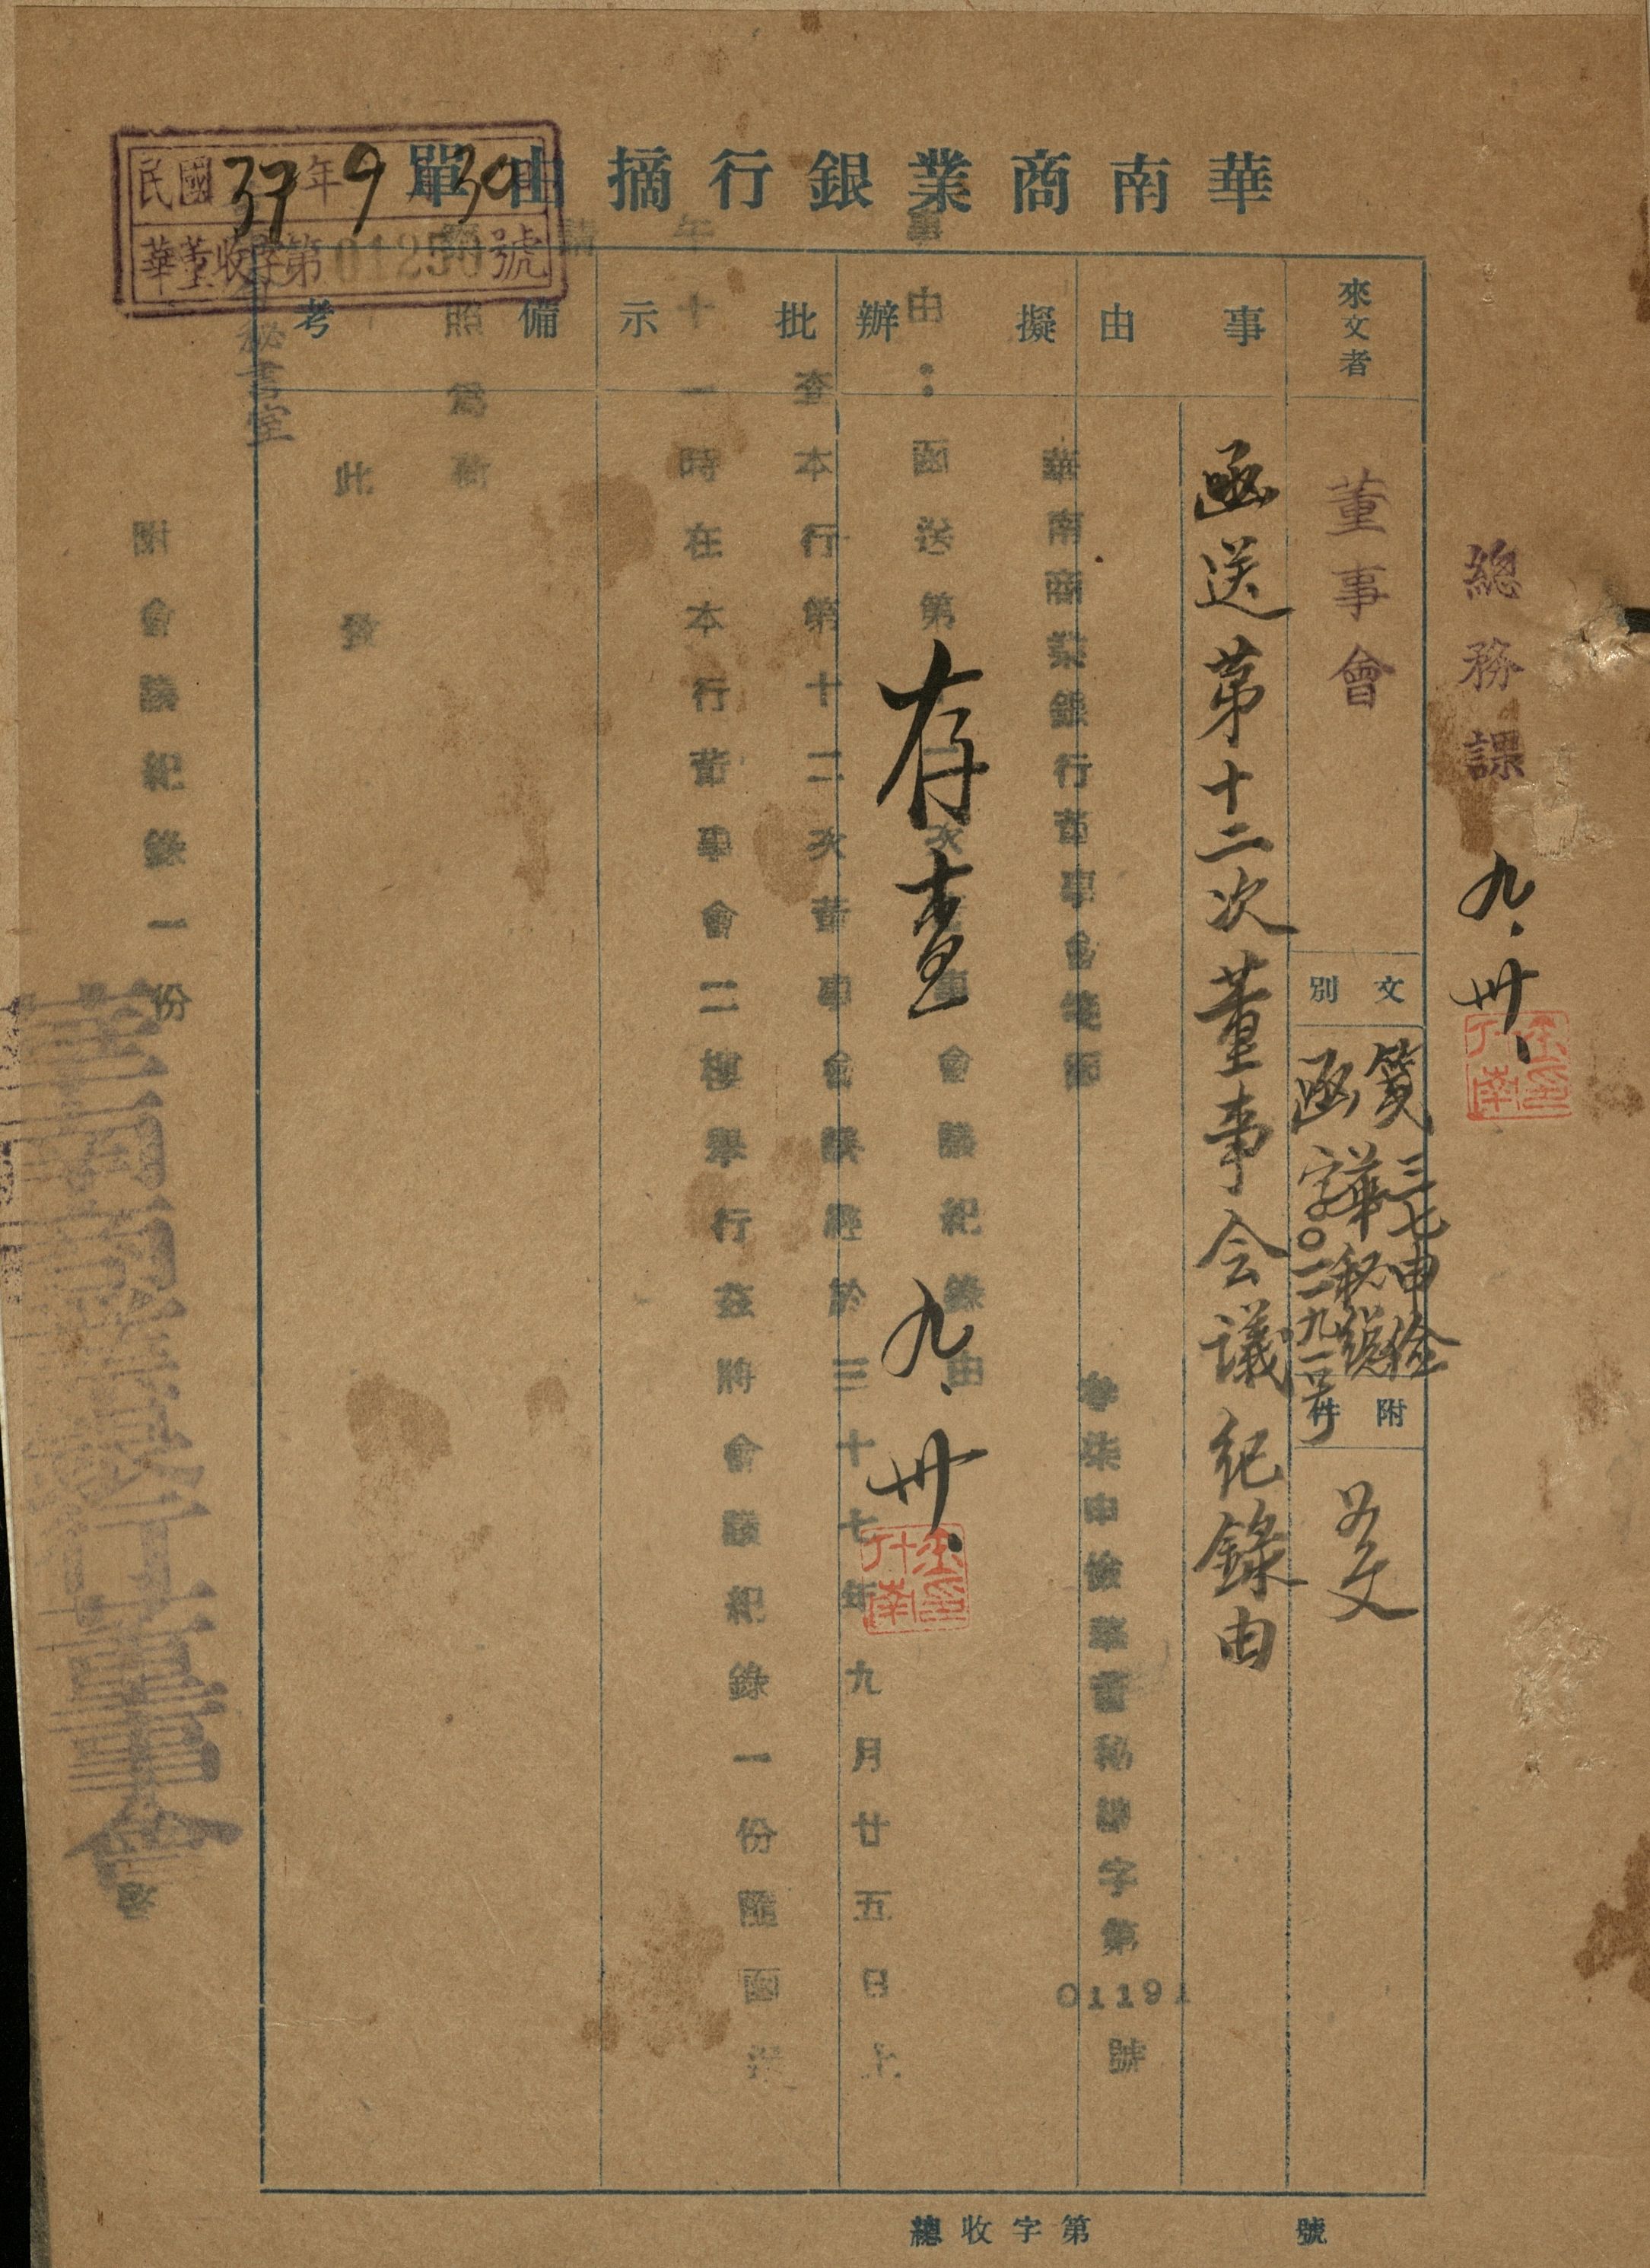 華南商業銀行摘由單
民國37年9月30日
華董收字第01250號
總務課
九.卅.
來文者
董事會
文別
箋函
三七申儉
華秘總字
〇一一九一號
附件
如文
事由
函送第十二次董事会議紀錄由
擬辦
存查
九.卅.
批示
備考
華南商業銀行董事會箋函
參柒申儉華董秘總字第01191號
事由:函送第十二次董事會議紀錄由
查本行第十二次董事會議經於三十七年九月廿五日上
午十一時在本行董事會二樓舉行茲將會議紀錄一份隨函送
請
察照為荷
此致
秘書室
附會議紀錄一份
華南商業銀行董事會啓
總收字第 號